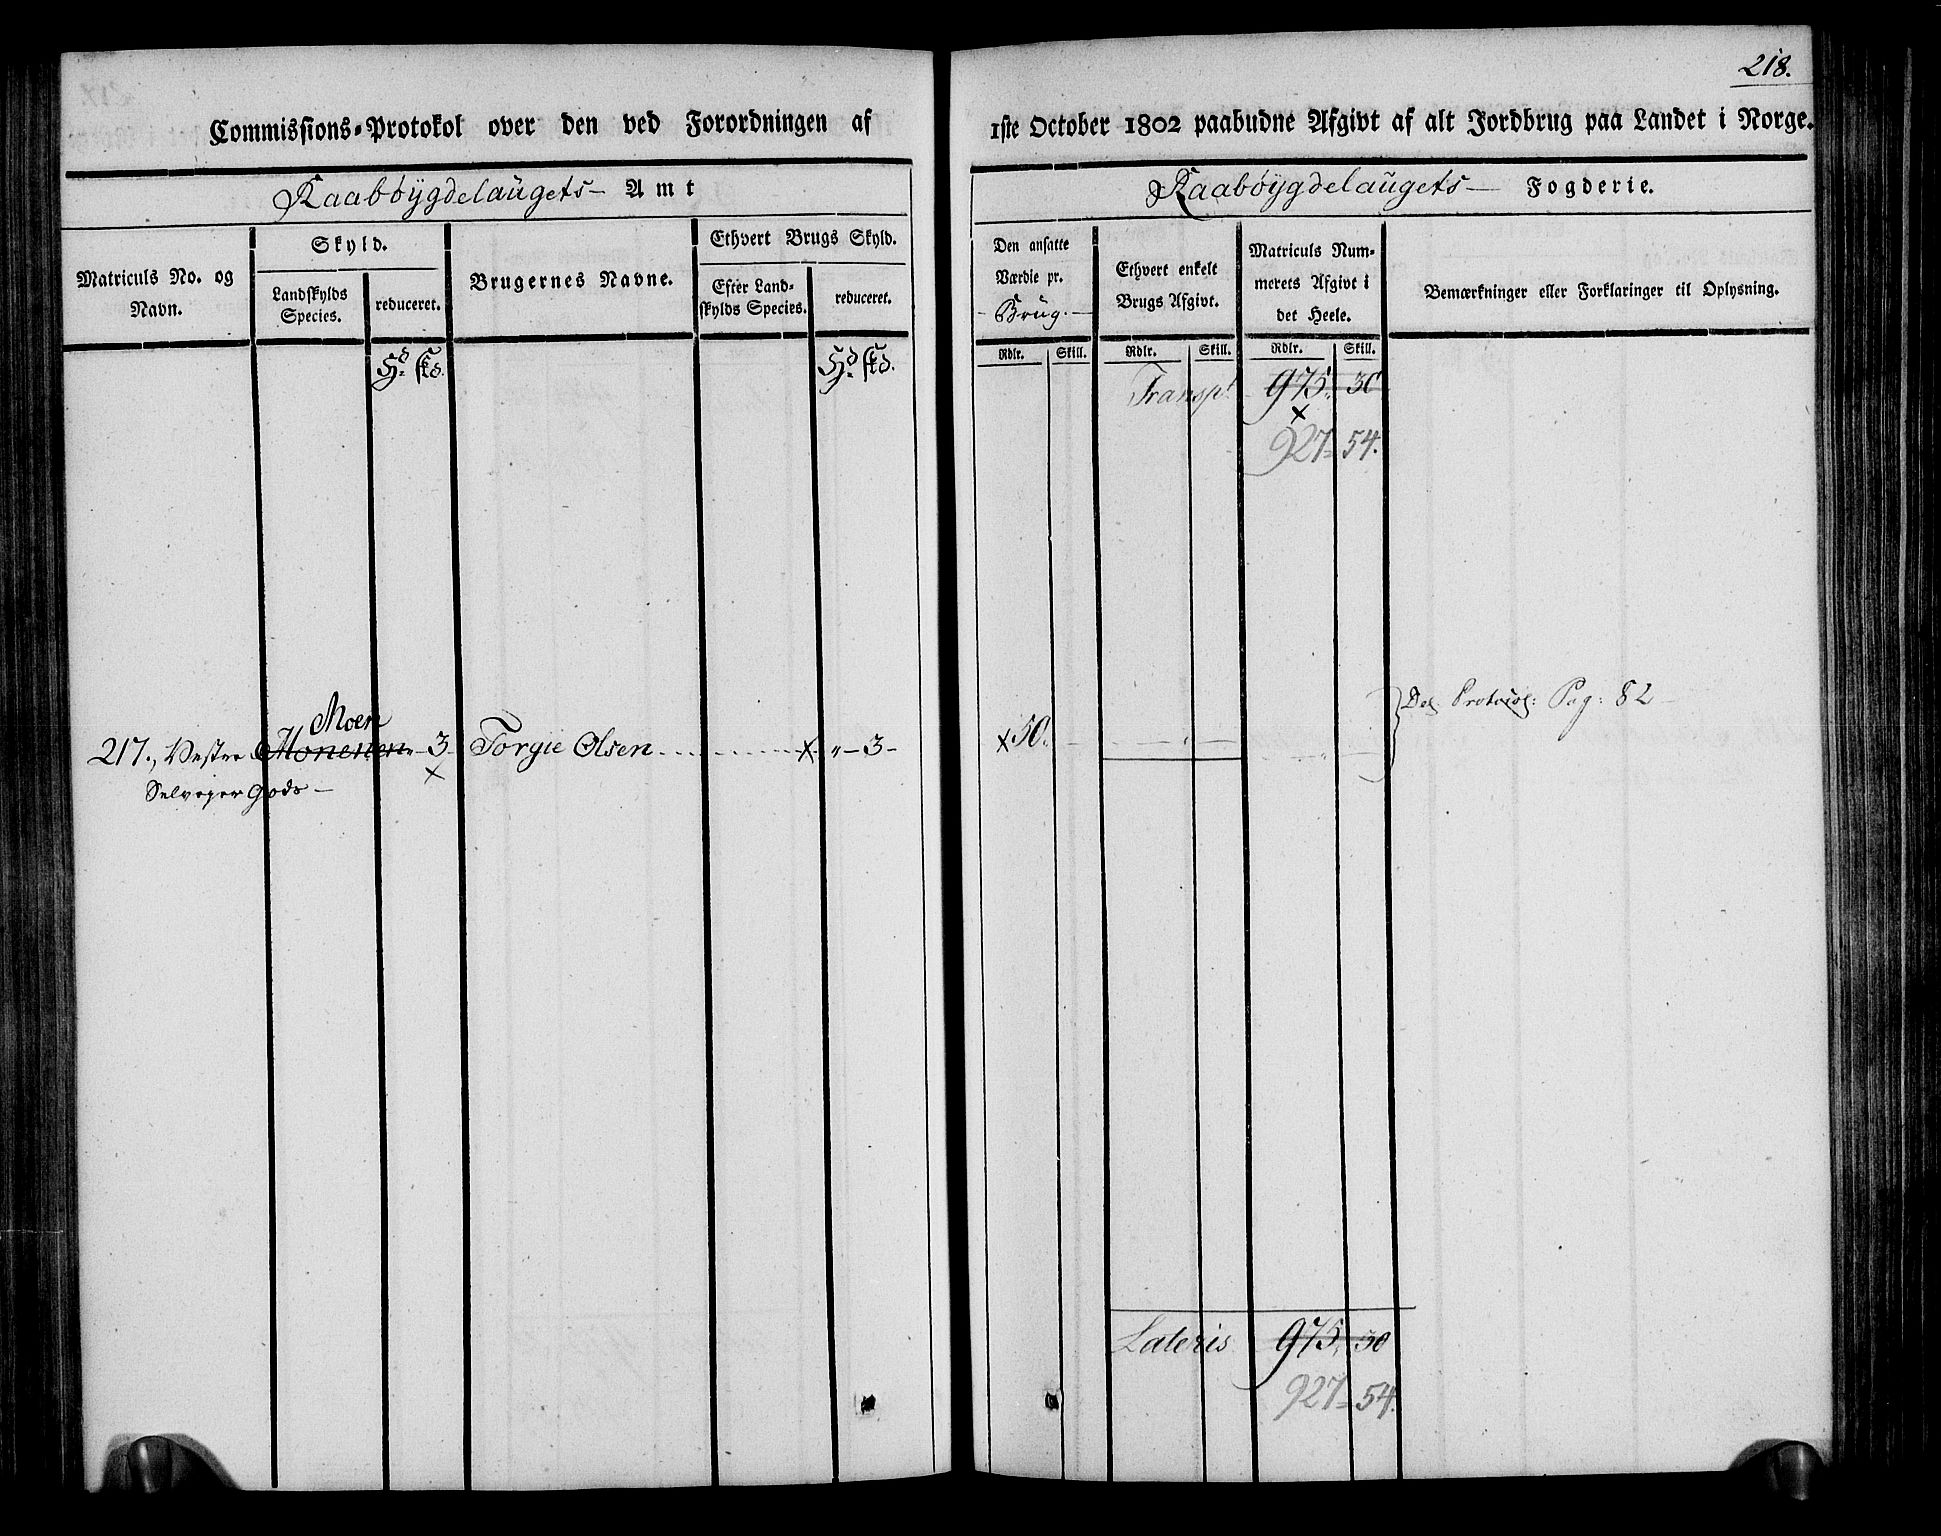 218.
Commissions-Protokol over den ved Forordningen af 1ste October 1802 paabudne Afgivt af alt Jordbrug paa Landet i Norge.
Raabøygdelaugets Amt
Raabøygdelaugets Fogderie.
Matriculs No. og Navn.
Skyld.
Landskylds Species.
reduceret.
Brugernes Navne.
Ethvert Brugs Skyld.
Efter Landskylds Species.
reduceret.
Den ansatte Værdie pr. Brug.
Ethvert enkelt Brugs Afgivt.
Matriculs Nummerets Afgivt i det Heele.
Bemærkninger eller Forklaringer til Oplysning.
Rdlr. Skill. Rdlr. Skill. Rdlr. Skill.
Hd. skd. Hd. skd.
Transpt. 975. 30
x
927 = 54.
Moen
217., Vestre Monenen " - 3 - Torgie Olsen x " - 3 - x 50. Del. Protocol: Pag: 82
x
Selvejer Gods -
Lateris 975. 30
927 = 54.